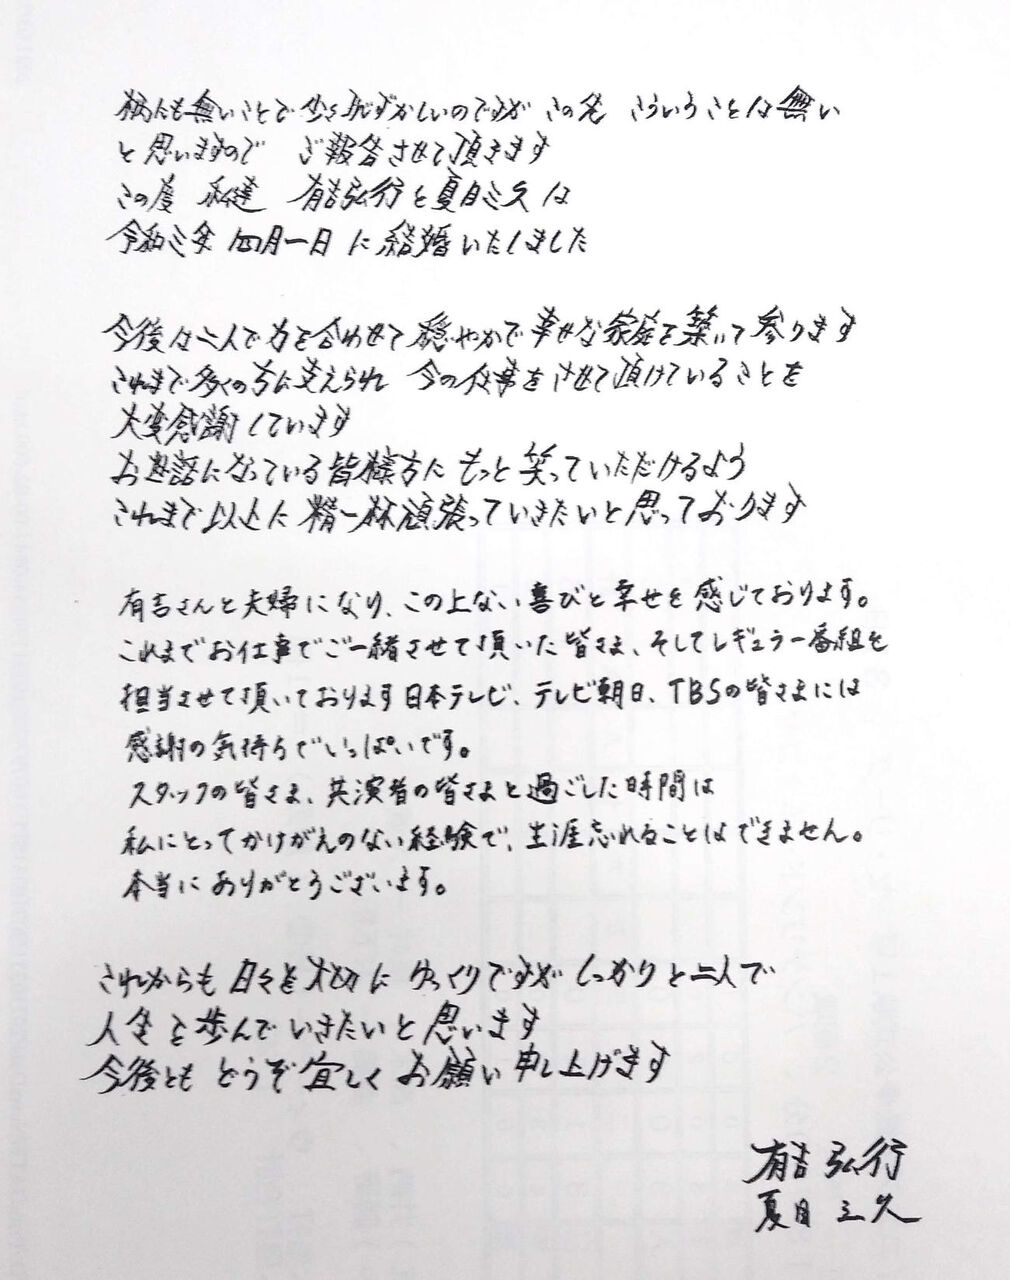 柄にも無いことで少々恥ずかしいのですが この先 こういうことは無い
と思いますので ご報告させて頂きます
この度 私達 有吉弘行と夏目三久は
令和三年 四月一日 に 結婚いたしました
今後は二人で力を合わせて 穏やかで幸せな家庭を築いて参ります
これまで多くの方に支えられ 今の仕事をさせて頂けていることを
大変感謝しています
お世話になっている皆様方に もっと笑っていただけるよう
これまで以上に 精一杯頑張っていきたいと思っております
有吉さんと夫婦になり、この上ない喜びと幸せを感じております。
これまでお仕事でご一緒させて頂いた皆さま、そしてレギュラー番組を
担当させて頂いております日本テレビ、テレビ朝日、TBSの皆さまには
感謝の気持ちでいっぱいです。
スタッフの皆さま、共演者の皆さまと過ごした時間は
私にとってかけがえのない経験で、生涯忘れることはできません。
本当にありがとうございます。
これからも 日々を大切に ゆっくりですが しっかりと二人で
人生を歩んでいきたいと思います
今後とも どうぞ宜しく お願い申し上げます
有吉弘行
夏目三久